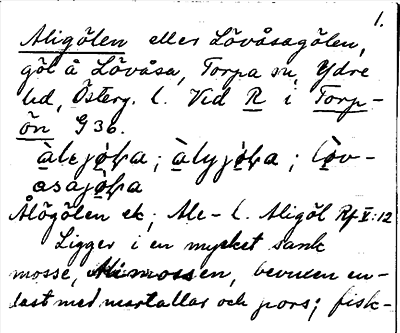 1.
Aligölen eller Lövåsagölen,
göl å Lövåsa, Torpa sn, Ydre
hd, Österg. l. Vid R i Torp-
ön G 36.
àlejö̀ɫa; àlyjö̀ɫa; lö̀v-
asajö̀ɫa
Ålögölen ek; Ale- l. Aligöl Rf V:12
Ligger i en mycket sank
mosse, Alimossen, bevuxen en-
dast med martallar och pors; fisk-